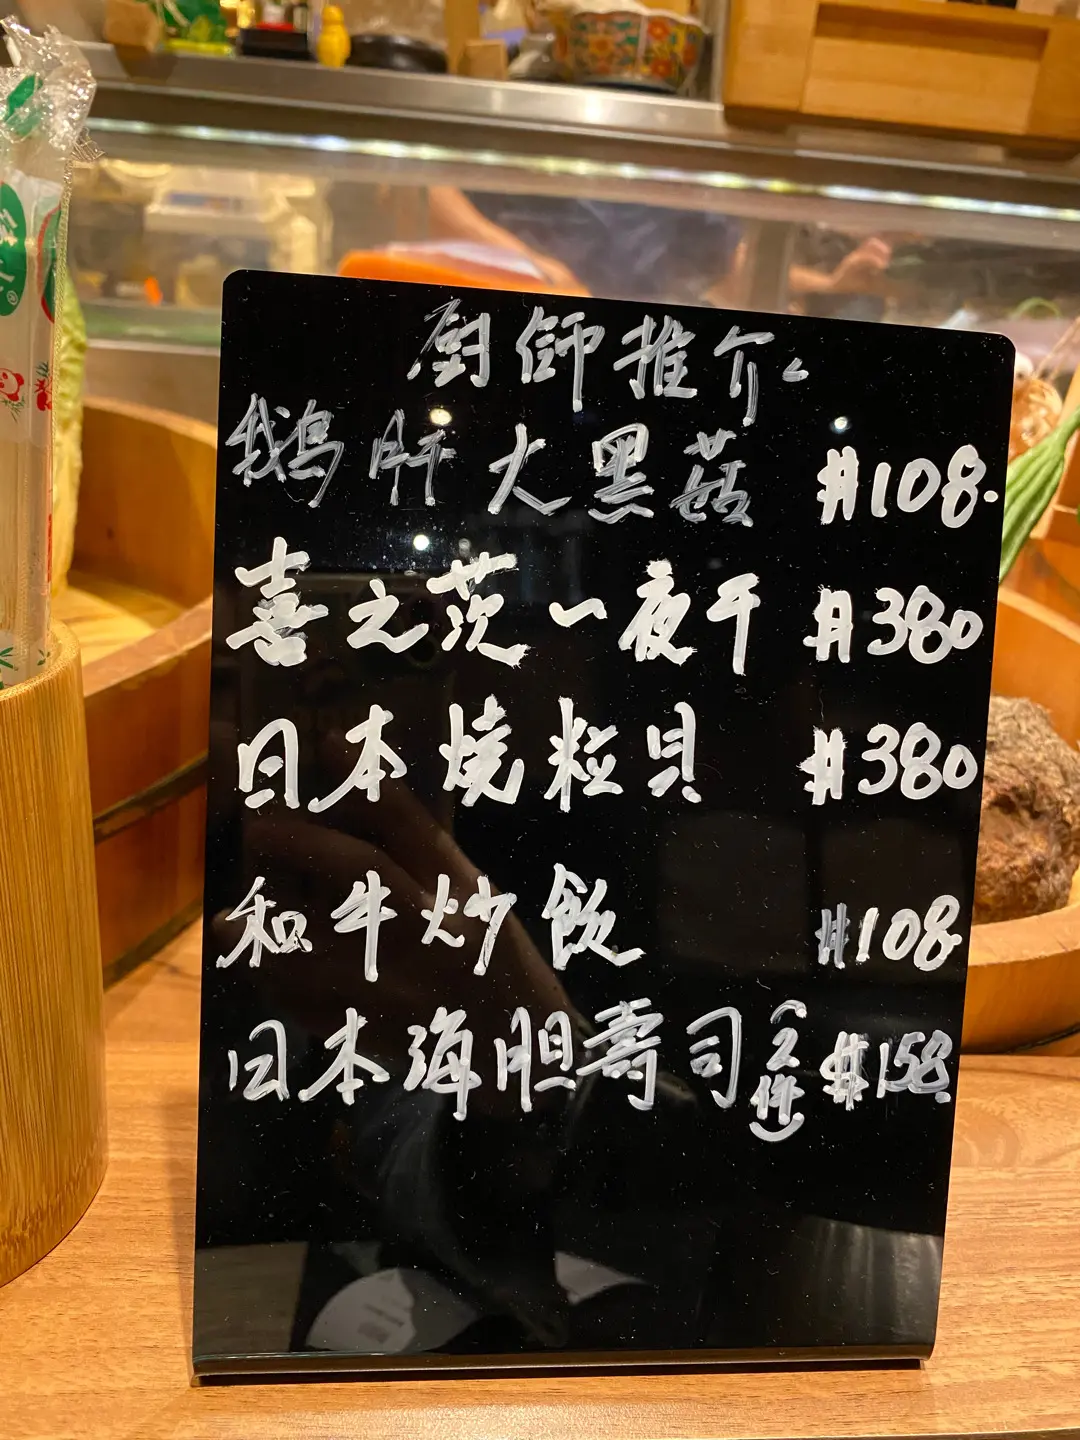 厨師推介
鵝肝大黑菇 $108.
喜之茨一夜干 $380
日本燒粒貝 $380
和牛炒飯 $108
日本海胆壽司(2件) $158